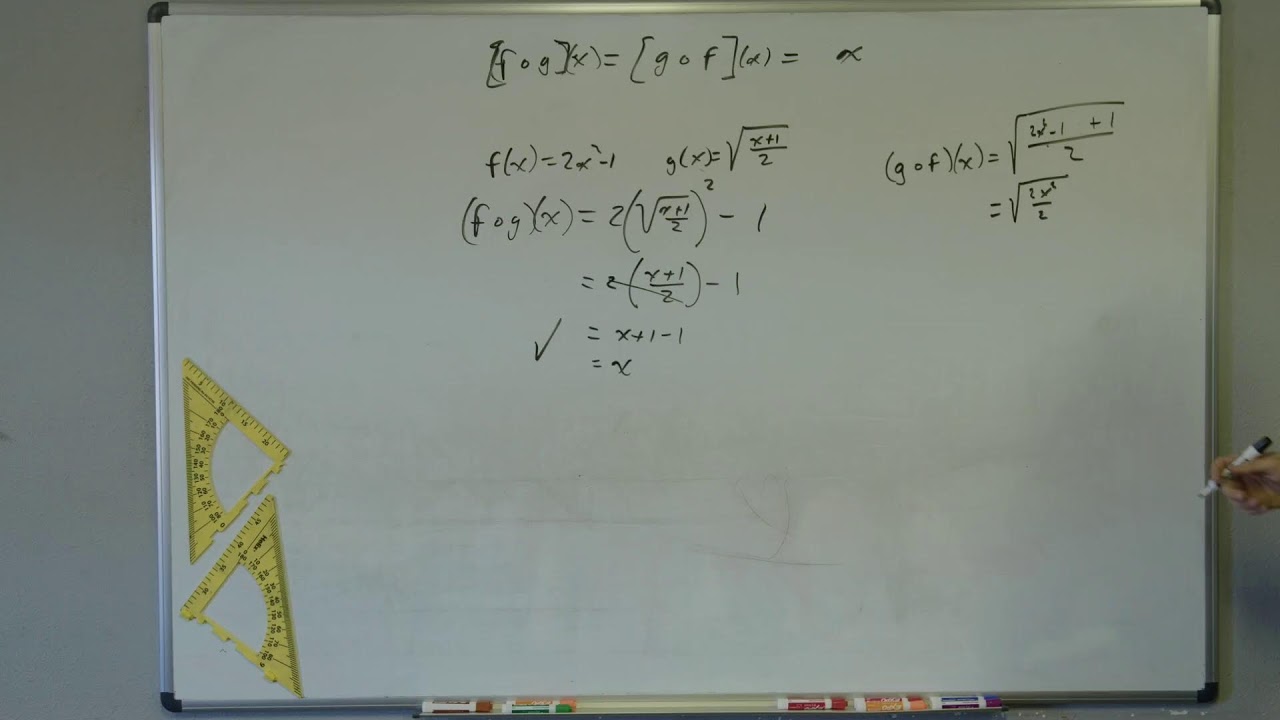 [f∘g](x) = [g∘f](x) = x
f(x) = 2x²-1 g(x) = √((x+1)/2)
(f∘g)(x) = 2(√((x+1)/2))² - 1
= 2((x+1)/2) - 1
✓ = x+1-1
= x
(g∘f)(x) = √((2x²-1 +1)/2)
= √(2x²/2)
Helix